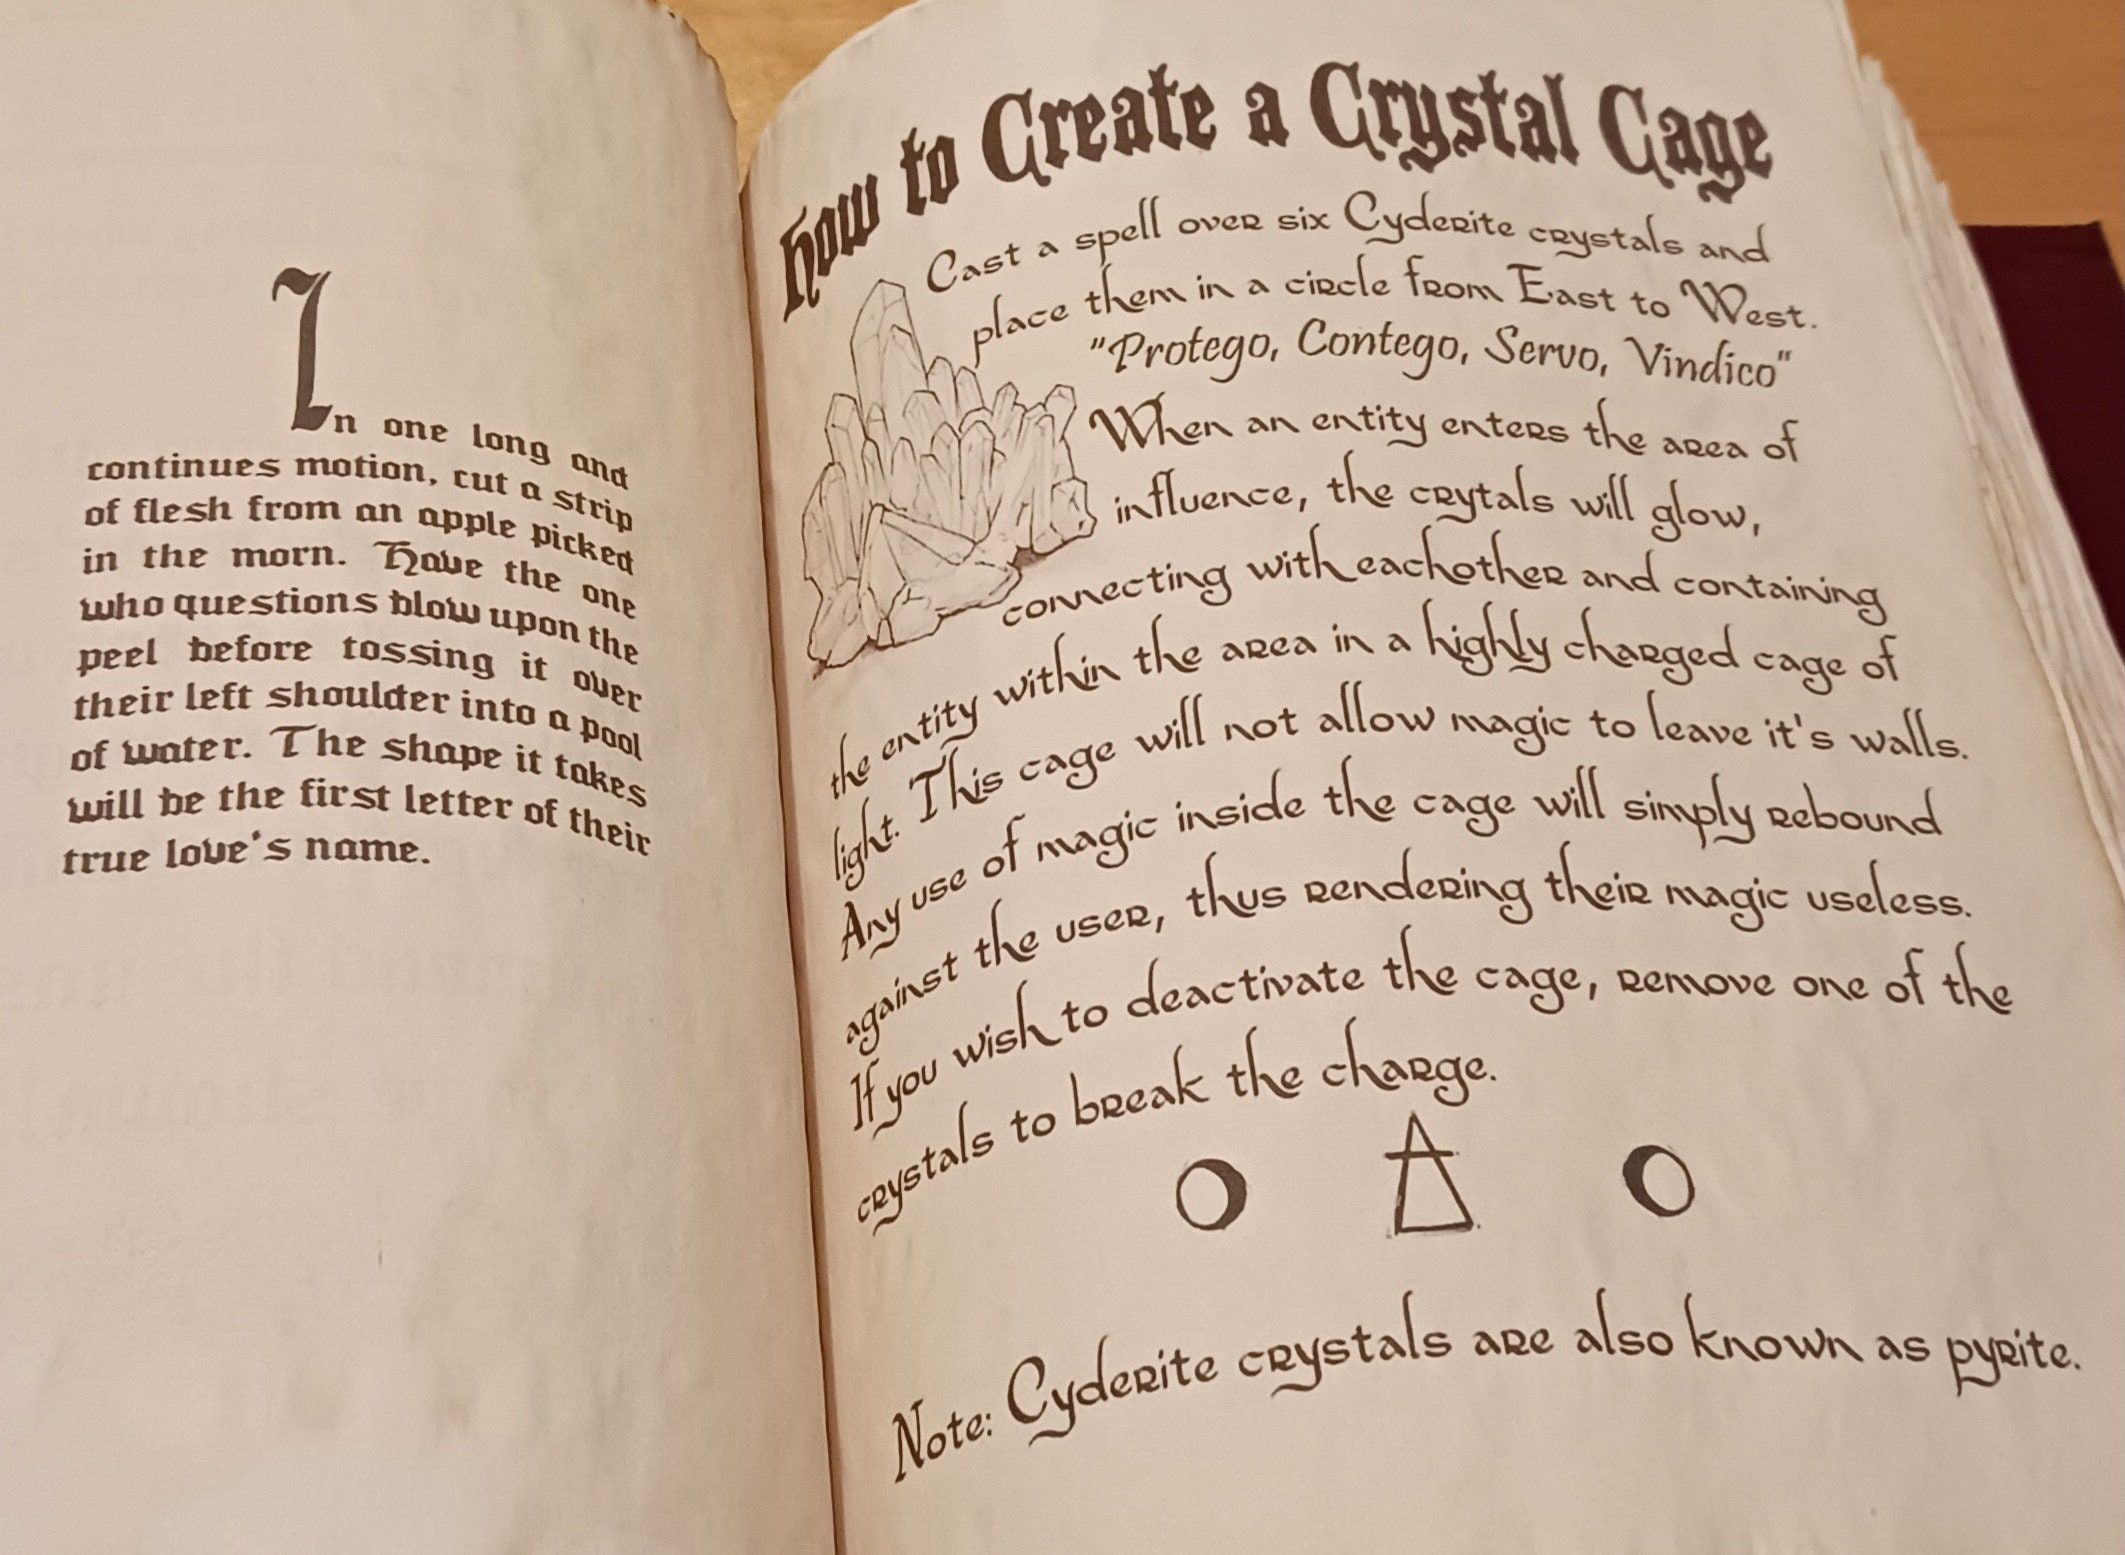 In one long and
continues motion, cut a strip
of flesh from an apple picked
in the morn. Have the one
who questions blow upon the
peel before tossing it over
their left shoulder into a pool
of water. The shape it takes
will be the first letter of their
true love's name.
How to Create a Crystal Cage
Cast a spell over six Cyderite crystals and
place them in a circle from East to West.
"Protego, Contego, Servo, Vindico"
When an entity enters the area of
influence, the crytals will glow,
connecting with eachother and containing
the entity within the area in a highly charged cage of
light. This cage will not allow magic to leave it's walls.
Any use of magic inside the cage will simply rebound
against the user, thus rendering their magic useless.
If you wish to deactivate the cage, remove one of the
crystals to break the charge.
Note: Cyderite crystals are also known as pyrite.